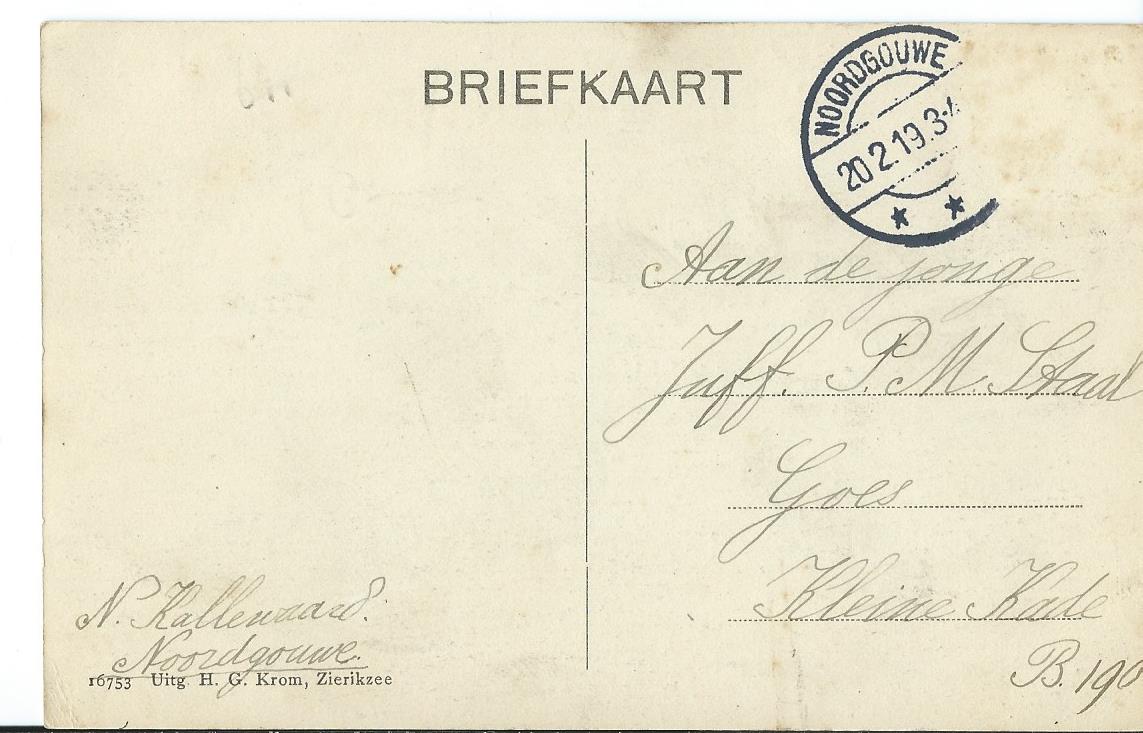 BRIEFKAART
NOORDGOUWE
20.2.19.3-4
Aan de jonge
Juff. P. M. Staal
Goes
Kleine Kade
B. 190
N. Kallewaard.
Noordgouwe.
16753 Uitg H. G. Krom, Zierikzee